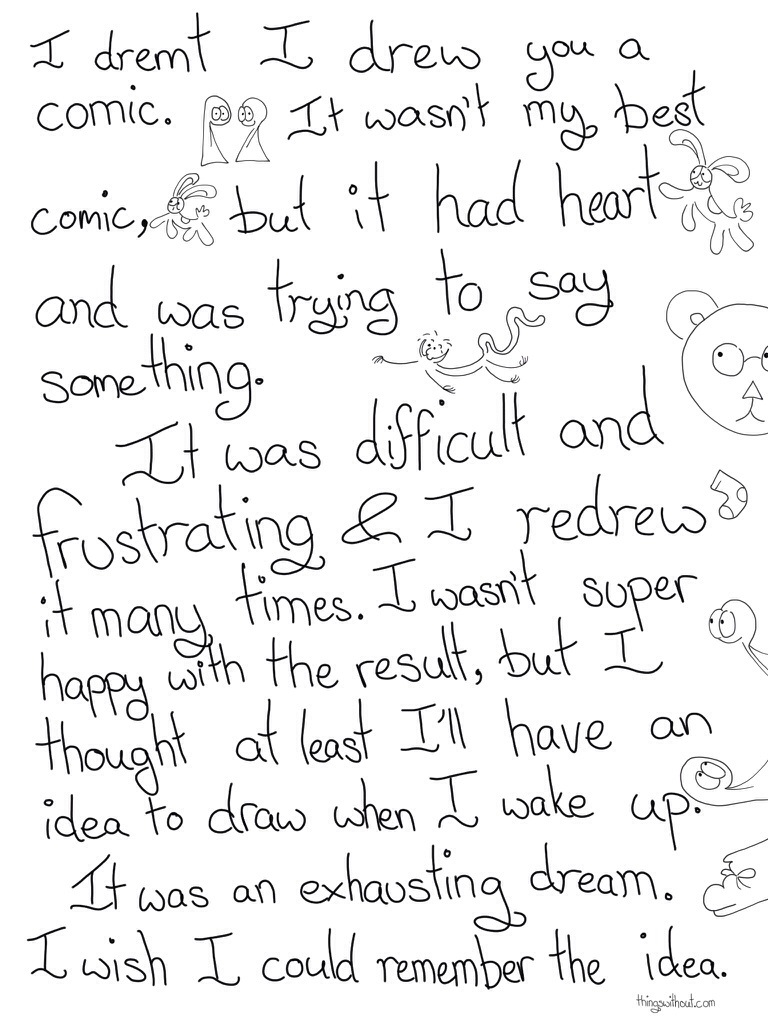 I dremt I drew you a
comic. It wasn't my best
comic, but it had heart
and was trying to say
something.
It was difficult and
frustrating & I redrew
it many times. I wasn't super
happy with the result, but I
thought at least I'll have an
idea to draw when I wake up.
It was an exhausting dream.
I wish I could remember the idea.
thingswithout.com